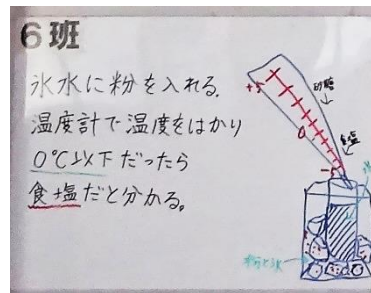 6班
氷水に粉を入れる。
温度計で温度をはかり
0℃以下だったら
食塩だと分かる。
+5
砂糖
0
食塩
-5
粉と氷